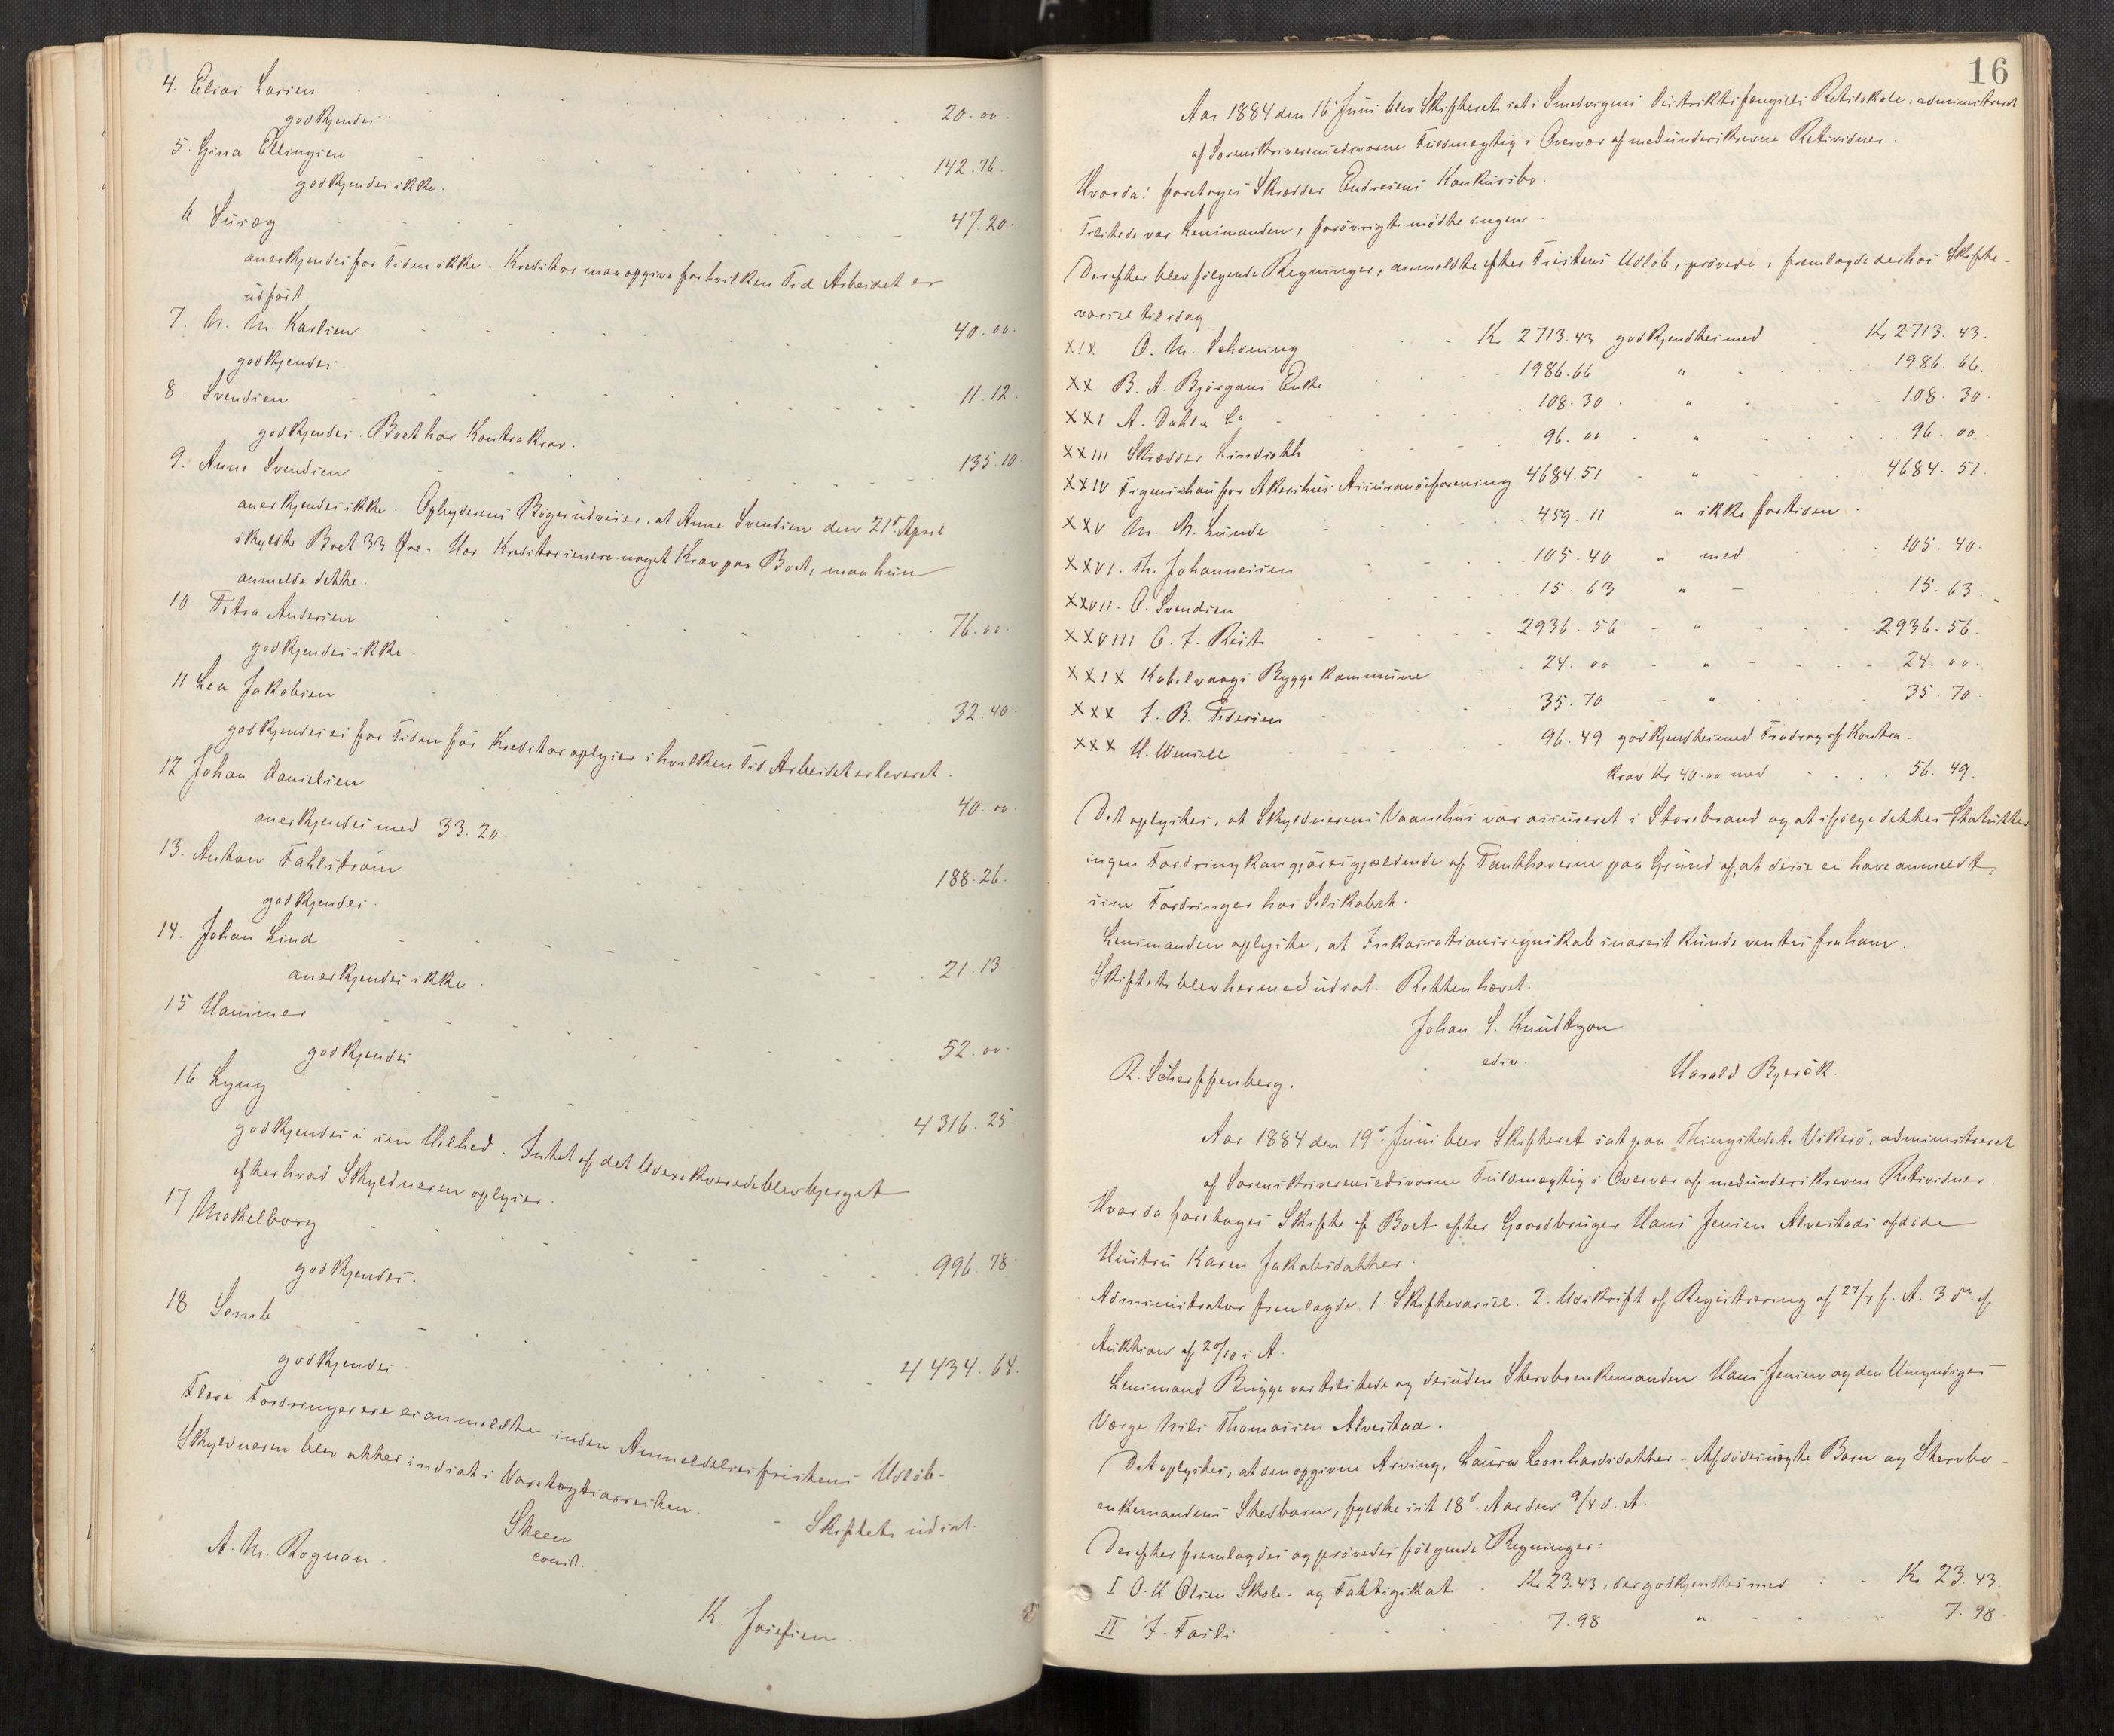 4. Elias Larsen
godkjendes
20.00
5. Gina Ellingsen
142.76.
godkjendes ikke.
6 Susæg
47.20.
anerkjendes for Tiden ikke. Kreditor maa opgive for hvilken Tid Arbeidet er
udført.
7. M. M. Karlsen.
40.00.
godkjendes.
8. Svendsen
11.12.
godkjendes. Boet har Kontrakrav.
9. Anne Svendsen
135.10.
anerkjendes ikke. Opbyderens Bøger udviser, at Anne Svendsen den 21de April
skyldte Boet 33 Øre. Har Kreditor senere noget Krav paa Boet, maa hun
anmelde dette.
10 Petra Andersen
76.00.
godkjendes ikke.
11 Lea Jakobsen
32.40.
godkjendes ei for Tiden før Kreditor oplyser i hvilken Tid Arbeidet er leveret.
12 Johan Danielsen
40.00.
anerkjendes med 33.20.
13. Anton Fahlstrøm
188.26.
godkjendes.
14. Johan Lind
21.13
anerkjendes ikke.
15 Hammer
52.00.
godkjendes
16 Lyng
4316.25.
godkjendes i sin Helhed. Intet af det blev bjerget
efter hvad Skyldneren oplyser.
17 Mokelborg
996.78.
godkjendes.
18 Somb
4434.64.
godkjendes.
Flere Fordringer ere ei anmeldte inden Anmeldelsesfristens Udløb.
Skyldneren blev atter indsat i Varetægtsarresten. - Skiftet udsat.
Steen
const.
A. M. Rognan
K. Josefsen.
16
Aar 1884 den 16de Juni blev Skifteret sat i Smedvigens Distriktsfængsels Retslokale, administreret
af Sorenskriverembedsvorne Fuldmægtig i Overvær af medunderskrevne Retsvidner.
Hvorda: foretages Skrædder Endresens Konkursbo.
Tilstede var Lensmanden, forøvrigt mødte ingen.
Derefter blev følgende Regninger, anmeldte efter Fristens Udløb, prøvede, fremlagde derhos Skifte-
varsel til idag
XIX O. M. Schöning Kr 2713.43 godkjendtes med Kr 2713.43.
XX B. A. Bjørgans Enke 1986.66 " 1986.66.
XXI A. Dahl & Co 108.30 " 108.30.
XXIII Skrædder Lindseth 96.00 " 96.00.
XXIV Tigenschou for Akershus Assuranceforening 4684.51 " 4684.51.
XXV M. A. Lunde 459.11 " ikke fortiden.
XXVI. Th. Johannesen 105.40 " med 105.40.
XXVII. O. Svendsen 15.63 " 15.63.
XXVIII C. F. Reist 2936.56 - " 2936.56.
XXIX Kabelvaags Byggekommune 24.00 - " 24.00.
XXX J. B. Pedersen 35.70 - " 35.70.
XXX H. Wensell 96.49 godkjendtes med Fradrag af Kontra-
krav Kr 40.00 med 56.49.
Det oplystes, at Skyldnerens Vaanehus var assureret i Storebrand og at ifølge dettes Statutter
ingen Fordring kan gjøres gjældende af Panthaverne paa Grund af, at disse ei have anmeldt
sine Fordringer hos Selskabet.
Lensmanden oplyste, at Inkassationsregnskab snarest kunde ventes fra ham.
Skiftet blev hermed udsat. Retten hævet.
Johan S. Knudtzon
edsv.
R. Scherffenberg.
Harald Bjerök.
Aar 1884 den 19de Juni blev Skifteret sat paa Thingstedet Vikersö, administreret
af Sorenskriverens edsvorne Fuldmægtig i Overvær af medunderskrevne Retsvidner.
Hvorda foretages Skifte af Boet efter Gaardbruger Hans Jensen Alvestads afdøde
Hustru Karen Jakobsdatter.
Administrator fremlagde 1. Skiftevarsel. 2. Udskrift af Registrering af 27/7 f. A. 3 do. af
Auktion af 20/10 s A.
Lensmand Brygge var tilstede og desuden Stervboenkemanden Hans Jensen og den Umyndiges
Værge Nils Thomassen Alvestad.
Det oplystes, at den opgivne Arving, Laura Leonhardsdatter - Afdødes uægte Barn og Stervbo-
enkemandens Stedbarn, fyldte sit 18de Aar den 9/4 d. A.
Derefter fremlagdes og prøvedes følgende Regninger:
I O. K Olsen Skole- og Fattigskat Kr 23.43, der godkjendtes med Kr 23.43.
II J. Forsli 7.98 " 7.98